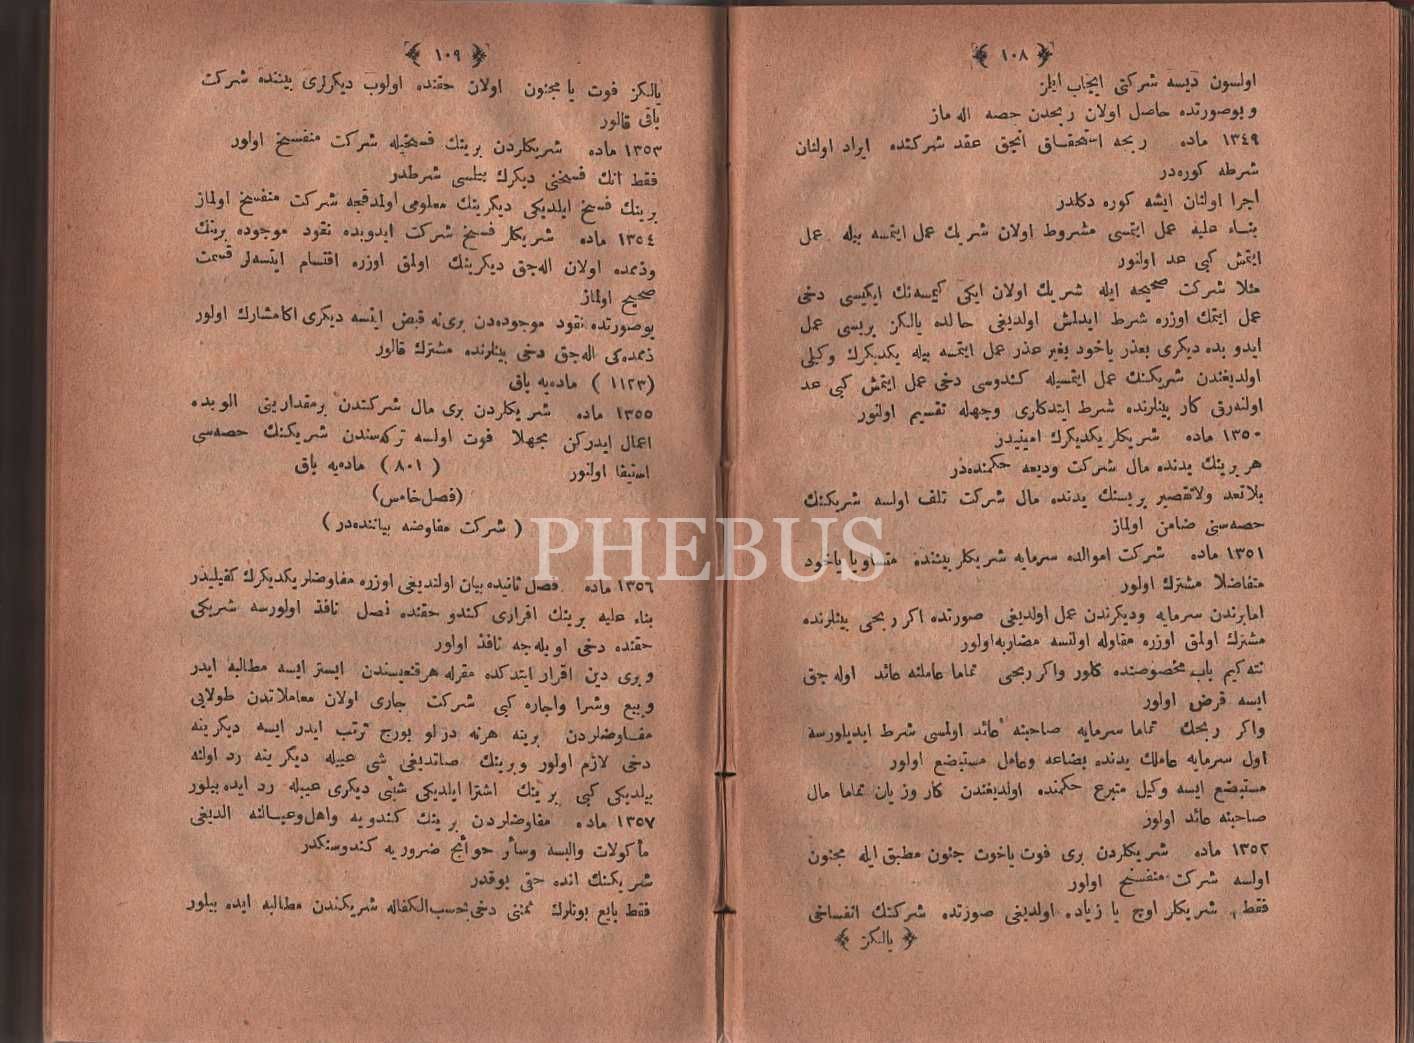 ﴿ ١٠٨ ﴾
اولسون ديسه شركتى ايجاب ايلز
و بوصورتده حاصل اولان ربحدن حصه اله ماز
١٣٤٩ ماده ربحه استحقاق انجق عقد شركتده ايراد اولنان
شرطه كوره در
اجرا اولنان ايشه كوره دكلدر
بناء عليه عمل ايتمسى مشروط اولان شريك عمل ايتمسه بيله عمل
ايتمش كبى عد اولنور
مثلا شركت صحيحه ايله شريك اولان ايكى كيمسه نك ايكيسى دخى
عمل ايتمك اوزره شرط ايدلمش اولديغى حالده يالكز بريسى عمل
ايدوبده ديكرى بعذر ياخود بغير عذر عمل ايتمسه بيله يكديكرك وكيلى
اولديغندن شريكنك عمل ايتمسيله كندوسى دخى عمل ايتمش كبى عد
اولنه رق كار بينلرنده شرط ايتدكلرى وجهله تقسيم اولنور
١٣٥٠ ماده شريكلر يكديكرك امينيدر
هر برينك يدنده مال شركت وديعه حكمنده در
بلاتعد ولاتقصير بريسنك يدنده مال شركت تلف اولسه شريكنك
حصه سنى ضامن اولماز
١٣٥١ ماده شركت اموالده سرمايه شريكلر بيننده متساويا ياخود
متفاضلا مشترك اولور
اما برندن سرمايه وديكرندن عمل اولديغى صورتده اكر ربحى بينلرنده
مشترك اولمق اوزره مقاوله اولنسه مضاربه اولور
نته كيم باب مخصوصنده كلور واكر ربحى تماما عاملنه عائد اوله جق
ايسه قرض اولور
واكر ربحك تماما سرمايه صاحبنه عائد اولمسى شرط ايديلورسه
اول سرمايه عاملك يدنده بضاعه وعامل مستبضع اولور
مستبضع ايسه وكيل متبرع حكمنده اولديغندن كار وزيان تماما مال
صاحبنه عائد اولور
١٣٥٢ ماده شريكلردن برى فوت ياخوت جنون مطبق ايله مجنون
اولسه شركت منفسخ اولور
فقط شريكلر اوچ يا زياده اولديغى صورتده شركتك انفساخى
﴿ يالكز ﴾
﴿ ١٠٩ ﴾
يالكز فوت يا مجنون اولان حقنده اولوب ديكرلرى بيننده شركت
باقى قالور
١٣٥٣ ماده شريكلردن برينك فسخيله شركت منفسخ اولور
فقط انك فسخنى ديكرك بيلمسى شرطدر
برينك فسخ ايلديكى ديكرينك معلومى اولمدقجه شركت منفسخ اولماز
١٣٥٤ ماده شريكلر فسخ شركت ايدوبده نقود موجوده برينك
وذممده اولان اله جق ديكرينك اولمق اوزره اقتسام ايتسه لر قسمت
صحيح اولماز
بوصورتده نقود موجوده دن برى نه قبض ايتسه ديكرى اكا مشارك اولور
ذممده كى اله جق دخى بينلرنده مشترك قالور
(١١٢٣) ماده يه باق
١٣٥٥ ماده شريكلردن برى مال شركتدن برمقدارينى الوبده
اعمال ايدركن مجهلا فوت اولسه تركه سندن شريكنك حصه سى
استيفا اولنور (٨٠١) ماده يه باق
(فصل خامس)
(شركت مفاوضه بياننده در)
١٣٥٦ ماده فصل ثانيده بيان اولنديغى اوزره مفاوضلر يكديكرك كفيليدر
بناء عليه برينك اقرارى كندو حقنده فصل نافذ اولورسه شريكى
حقنده دخى اويله جه نافذ اولور
وبرى دين اقرار ايتدكده مقرله هرقنغيسندن ايستر ايسه مطالبه ايدر
وبيع وشرا واجاره كبى شركت جارى اولان معاملاتدن طولايى
مفاوضلردن برينه هرنه درلو بورج ترتب ايدر ايسه ديكرينه
دخى لازم اولور وبرينك صاتديغى شى عيبله ديكرينه رد اولنه
بيلديكى كبى برينك اشترا ايلديكى شيئى ديكرى عيبله رد ايده بيلور
١٣٥٧ ماده مفاوضلردن برينك كندويه واهل وعيالنه الديغى
مأكولات والبسه وسائر حوائج ضروريه كندوسنكدر
شريكنك انده حقى يوقدر
فقط بايع بونلرك ثمننى دخى بحسب الكفاله شريكندن مطالبه ايده بيلور
PHEBUS